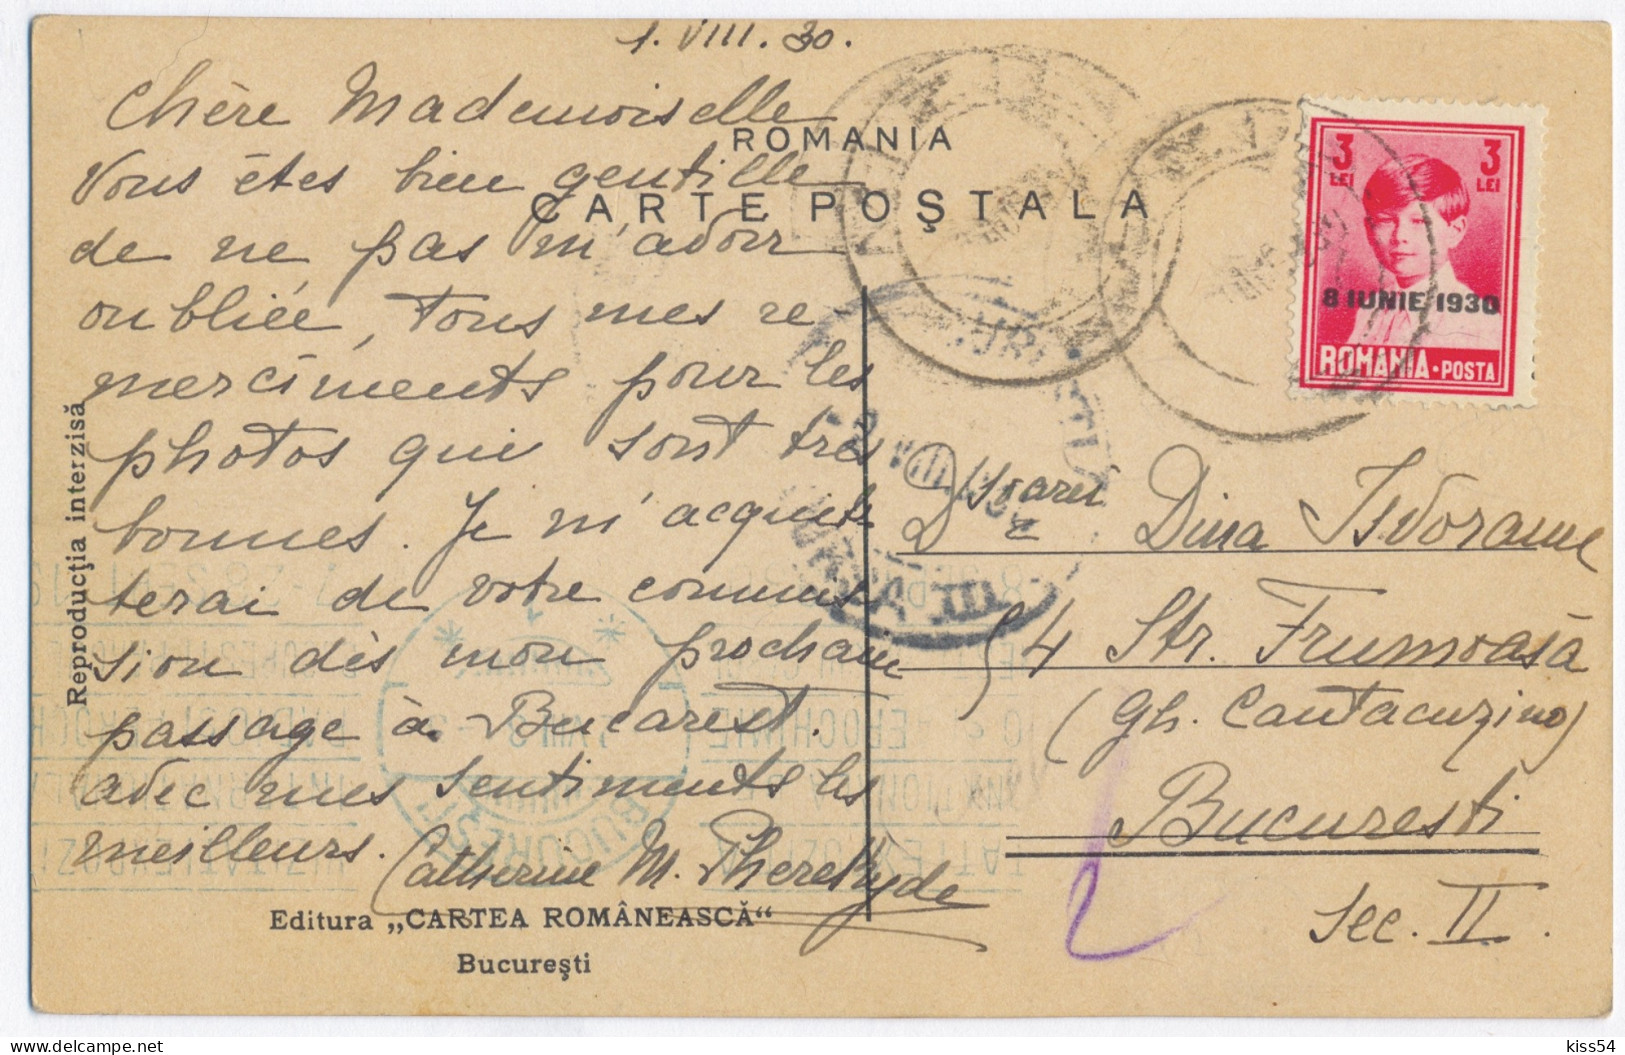 1. VIII. 30.
Chère Mademoiselle
Vous êtes bien gentille
de ne pas m'avoir
oubliée, Tous mes re-
merciments pour les
photos qui sont très
bonnes. Je m'acquit-
terai de votre commis-
sion dès mon prochain
passage à Bucarest.
avec mes sentiments les
meilleurs.
Catherine M.
ROMANIA
CARTE POȘTALA
3 LEI
3 LEI
8 IUNIE 1930
ROMANIA·POSTA
D/șoarei Dina Isvoranu
54 Str. Frumoasă
(Gh. Cantacuzino)
Bucuresti
Sec. II.
Reproducția interzisă
Editura „CARTEA ROMÂNEASCĂ“
București
kiss54